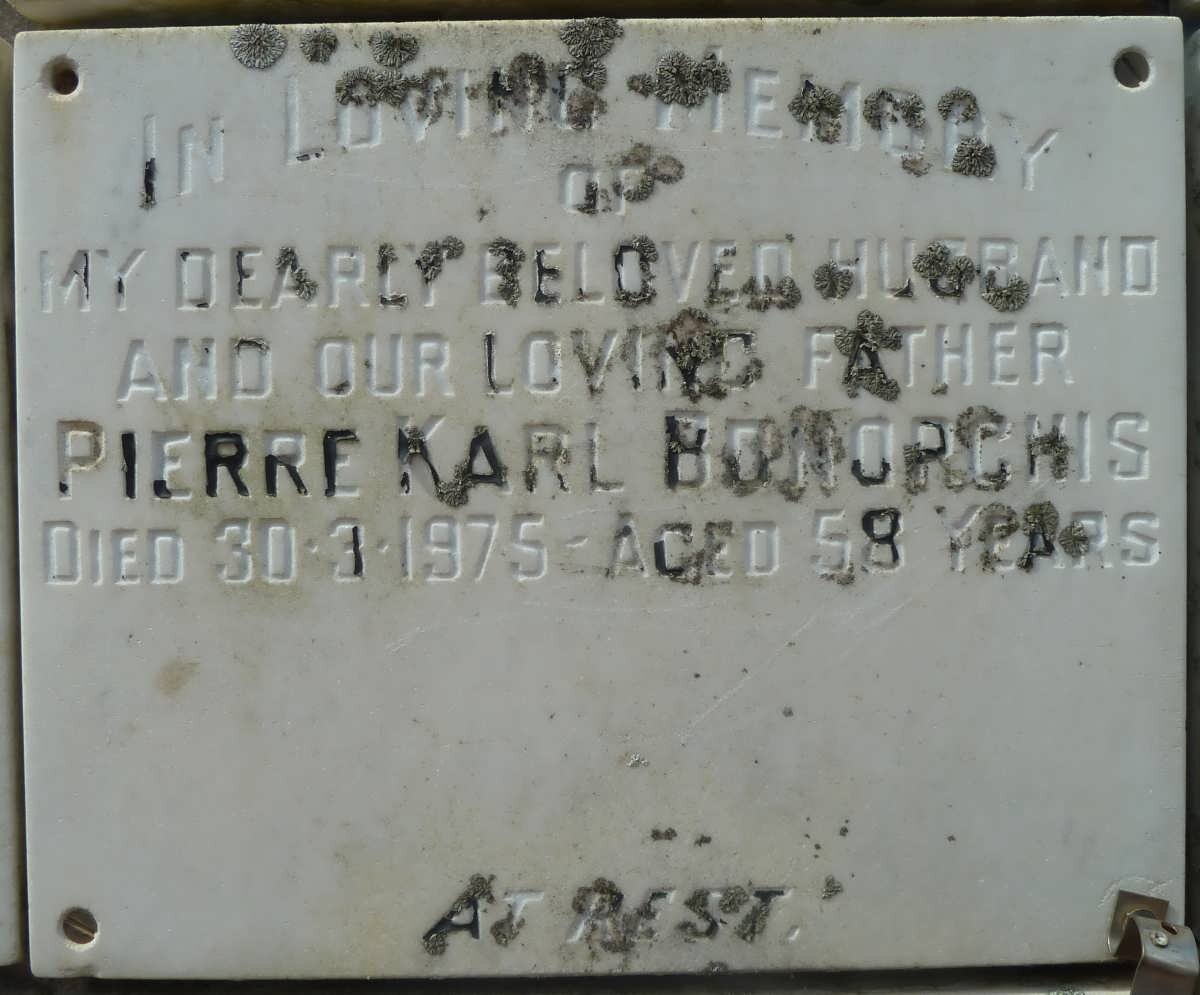 In Loving Memory
of
MY DEARLY BELOVED HUSBAND
AND OUR LOVING FATHER
PIERRE KARL BONORCHIS
DIED 30·3·1975 - AGED 58 YEARS
AT REST.